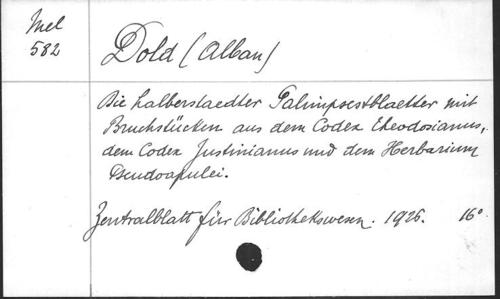 Mel
582
Dold (Alban)
Die halberstaedter Palimpsestblaetter mit
Bruchstücken aus dem Codex Theodosianus,
dem Codex Justinianus und dem Herbarium
Pseudoapulei.
Zentralblatt für Bibliothekswesen. 1925. 16°